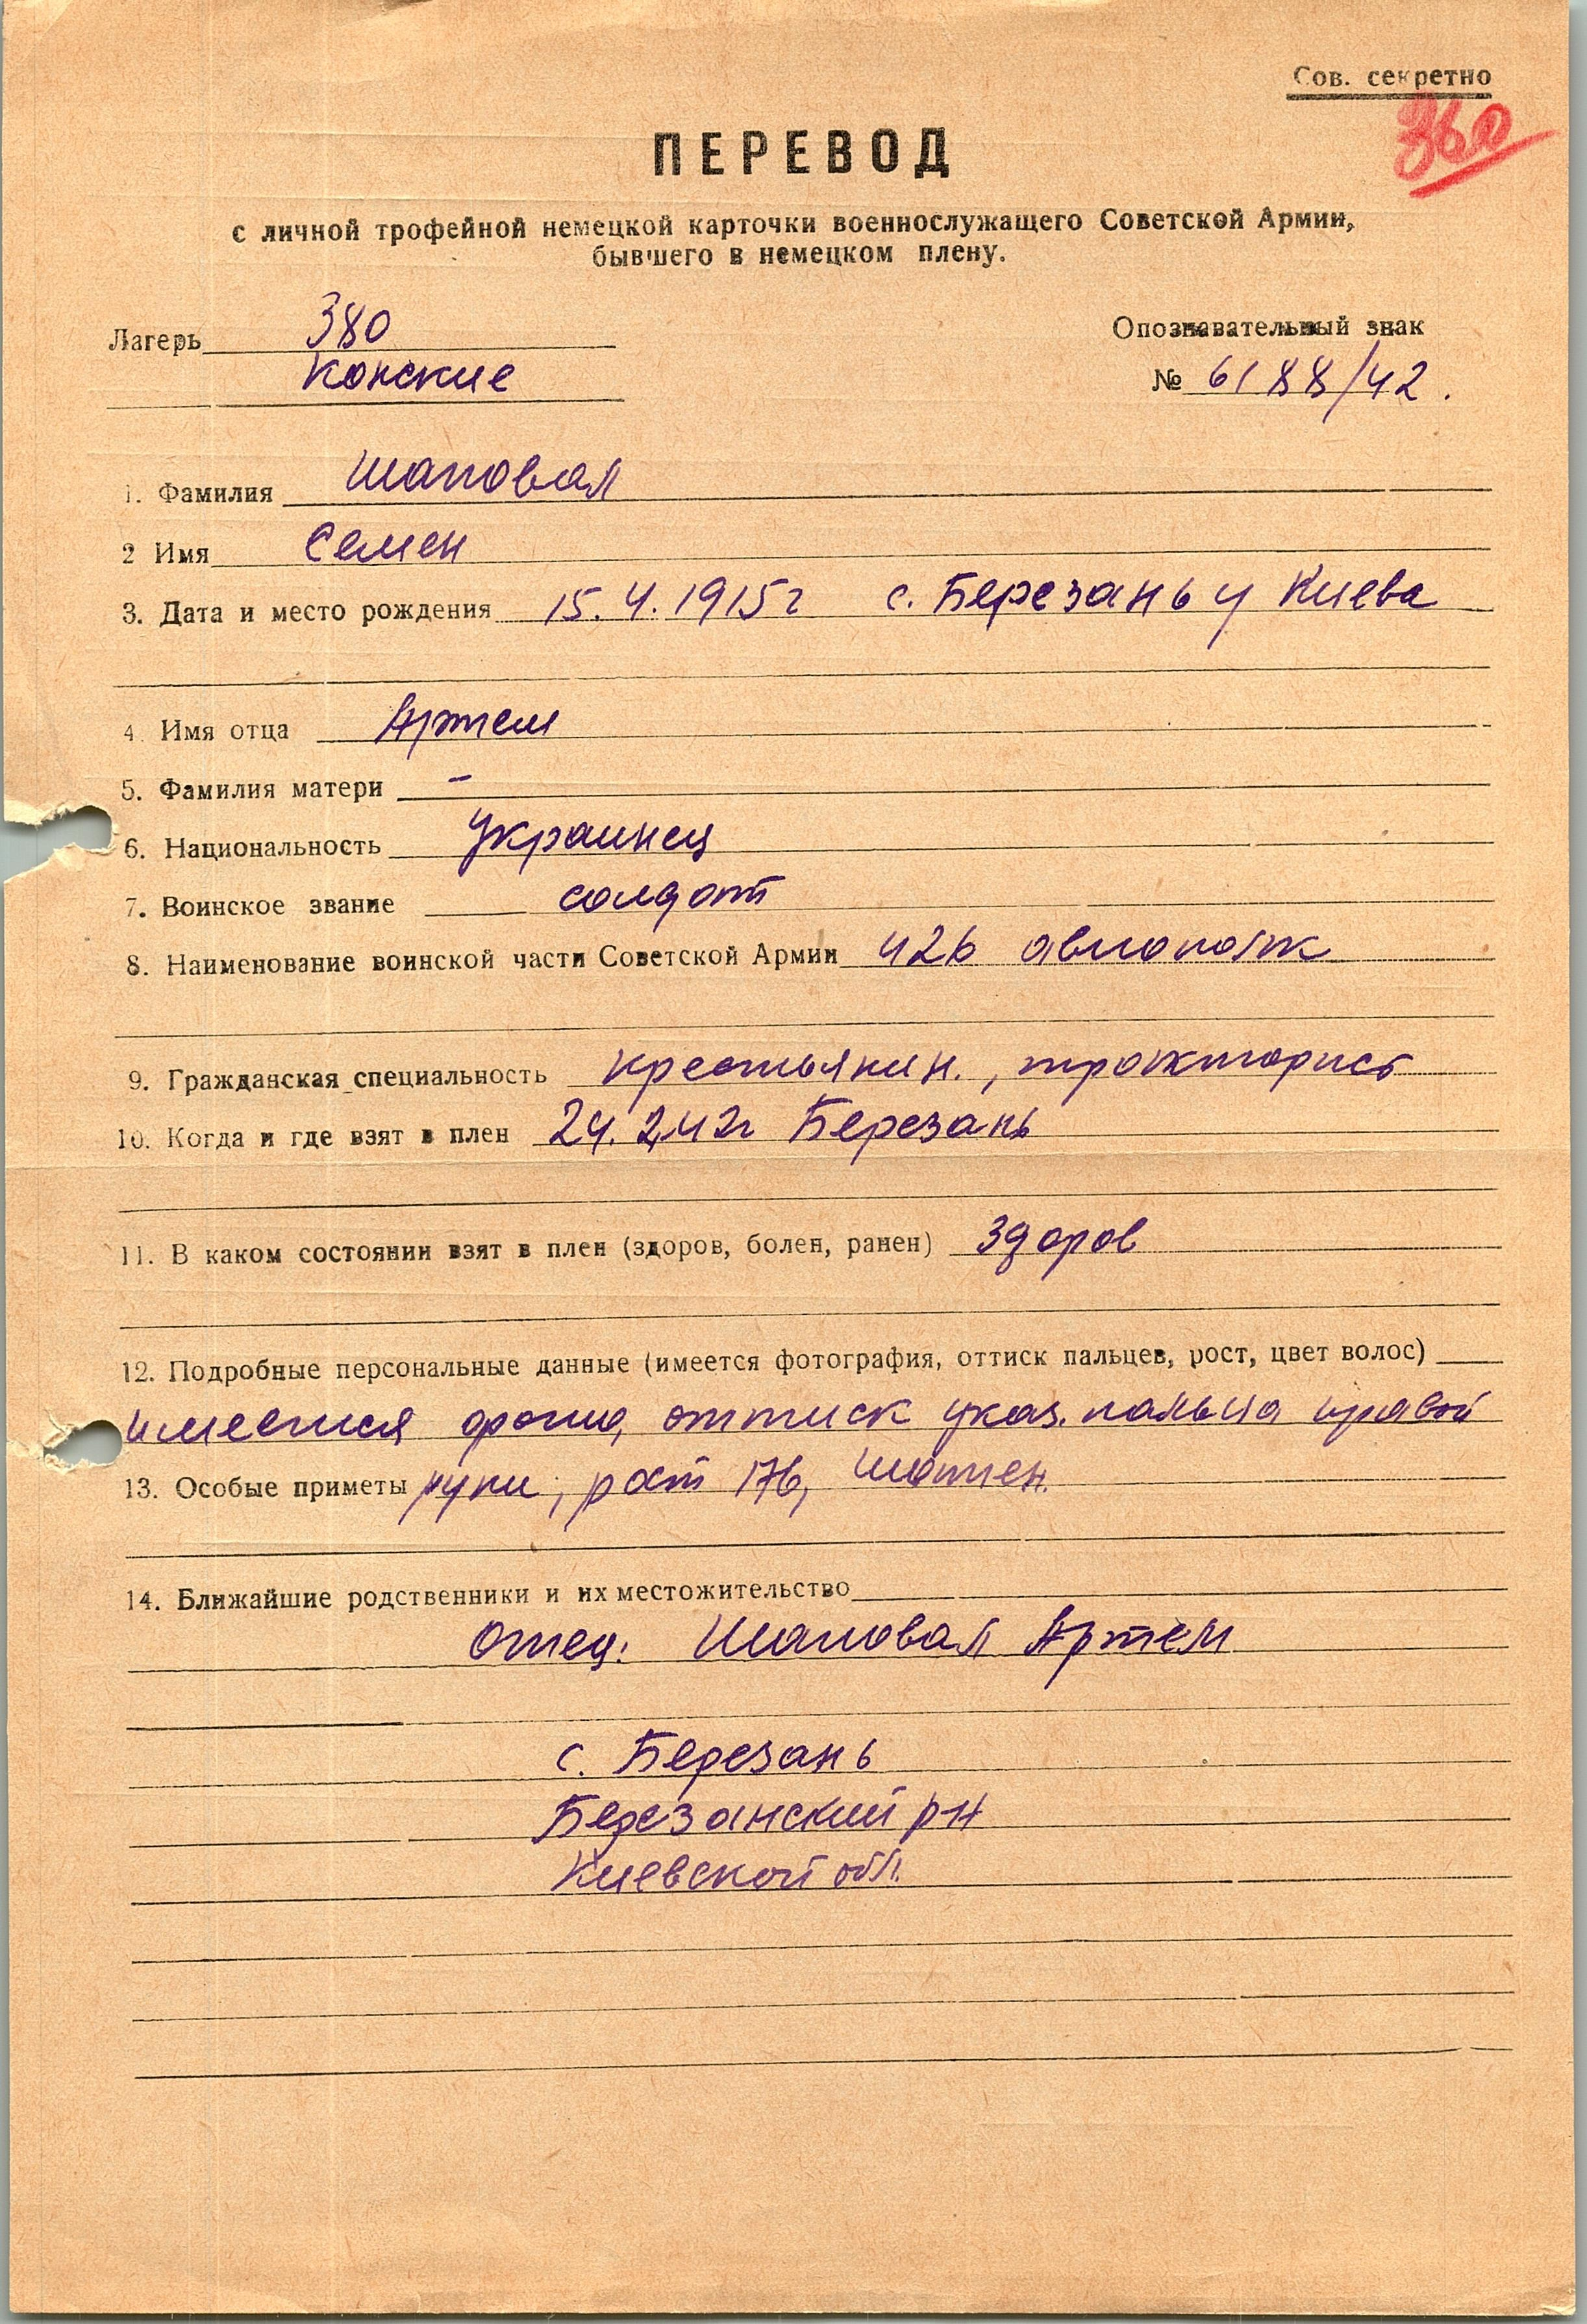 Сов. секретно
360
ПЕРЕВОД
с личной трофейной немецкой карточки военнослужащего Советской Армии,
бывшего в немецком плену.
Лагерь 380
Конские
Опознавательный знак
№ 6188/42.
1. Фамилия Шаповал
2 Имя Семен
3. Дата и место рождения 15.4.1915г с. Березань у Киева
4. Имя отца Артем
5. Фамилия матери –
6. Национальность Украинец
7. Воинское звание солдат
8. Наименование воинской части Советской Армии 426 авиополк
9. Гражданская специальность крестьянин., тракторист
10. Когда и где взят в плен 24.2.42г Березань
11. В каком состоянии взят в плен (здоров, болен, ранен) здоров
12. Подробные персональные данные (имеется фотография, оттиск пальцев, рост, цвет волос)
имеется фото, оттиск указ. пальца правой
13. Особые приметы руки, рост 176, шатен.
14. Ближайшие родственники и их местожительство
Отец: Шаповал Артем
с. Березань
Березанский р-н
Киевской обл.